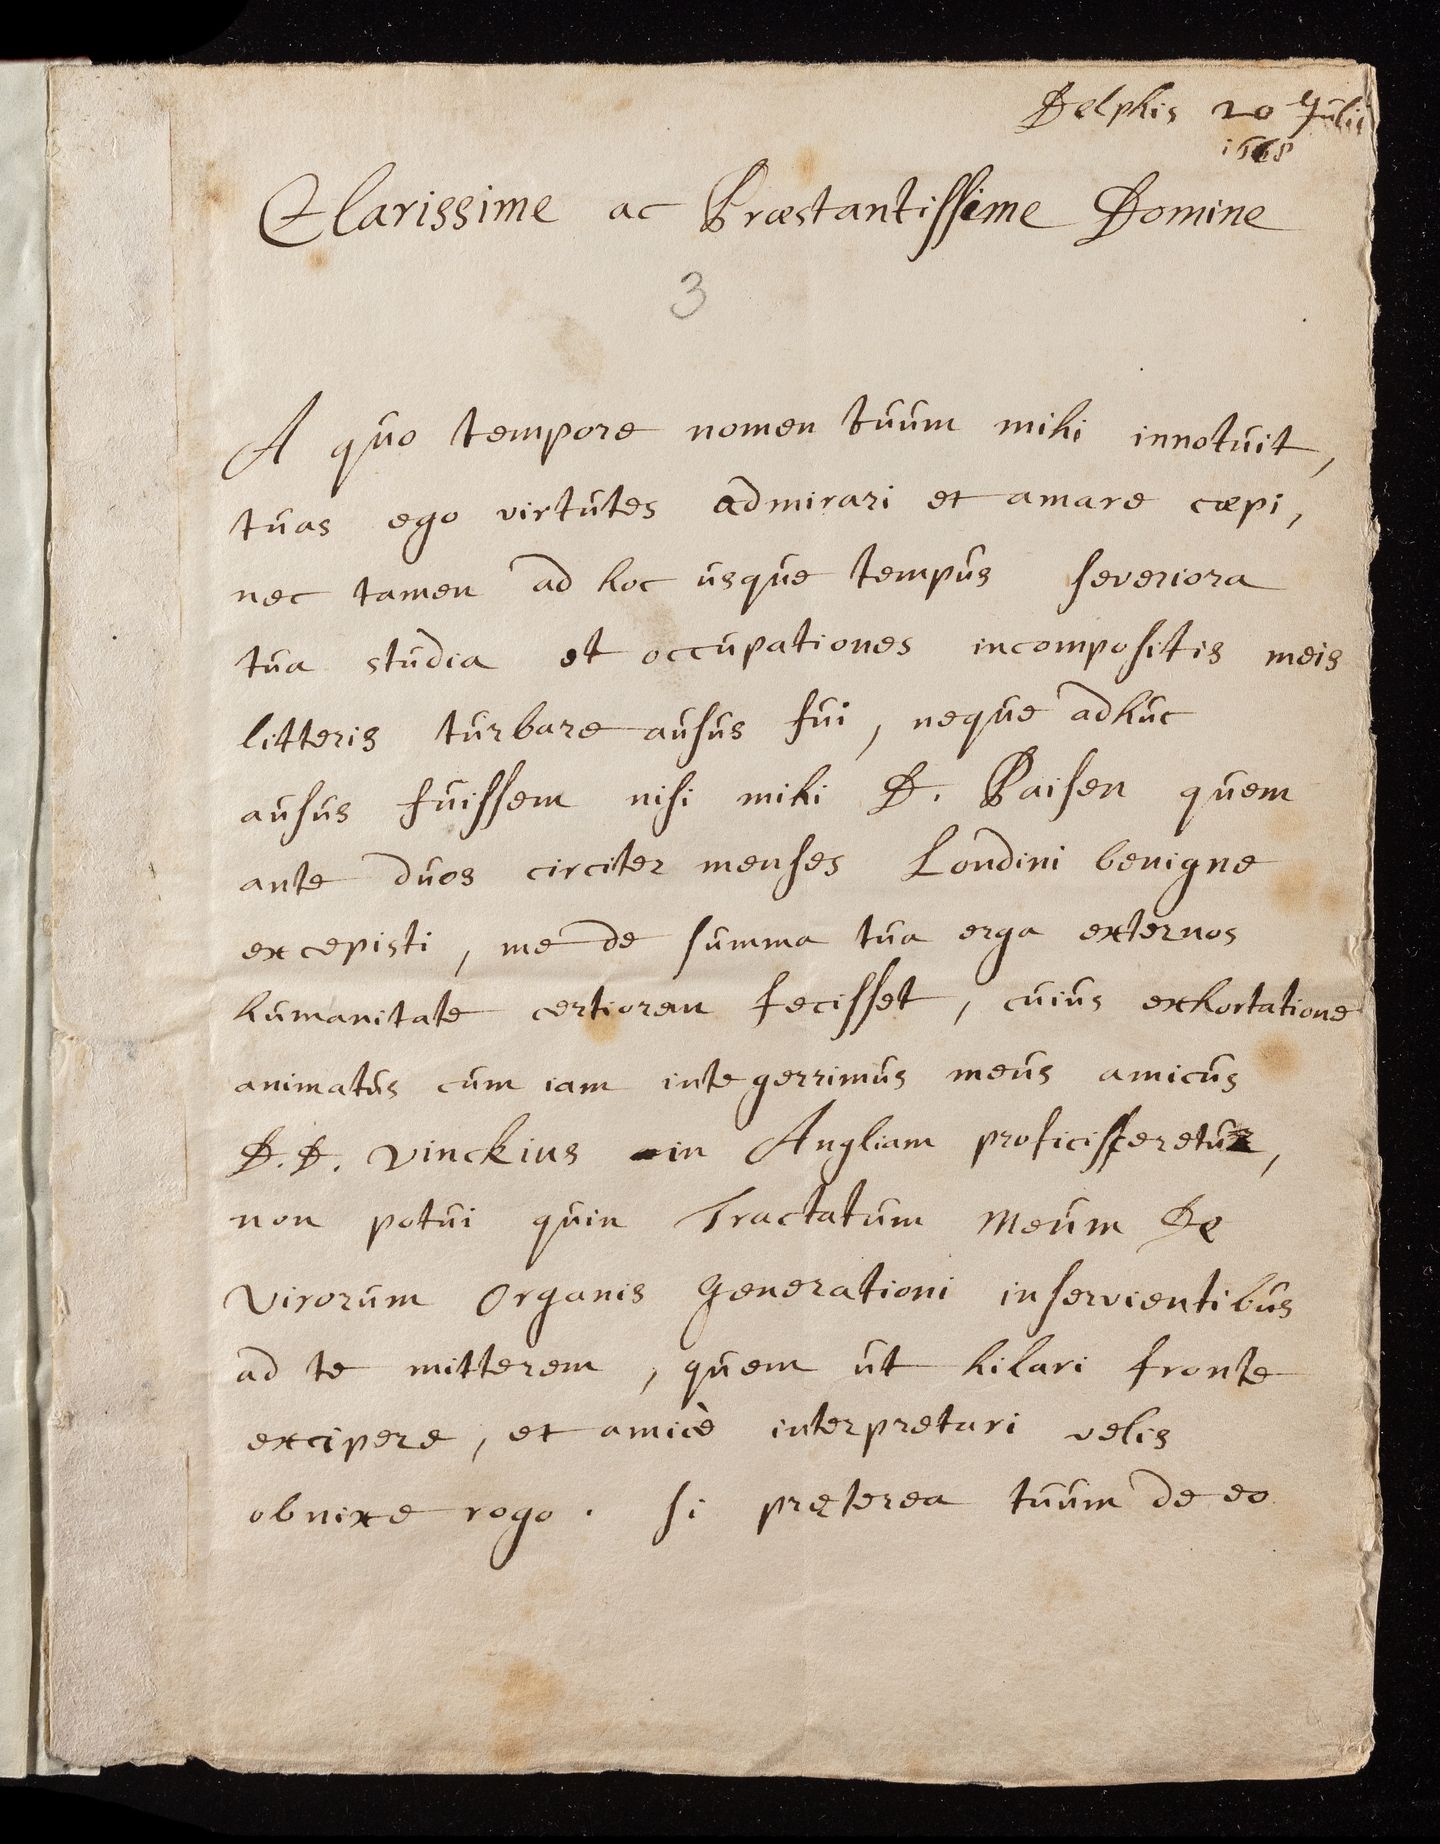 Delphis 20 Julii
1668
Clarissime ac Præstantissime Domine
3
A quo tempore nomen tuum mihi innotuit,
tuas ego virtutes admirari et amare cœpi,
nec tamen ad hoc usque tempus severiora
tua studia et occupationes incompositis meis
litteris turbare ausus fui, neque adhuc
ausus fuissem nisi mihi D. Paisen quem
ante duos circiter menses Londini benigne
excepisti, me de summa tua erga externos
humanitate certiorem fecisset, cuius exhortatione
animatus cum iam integerrimus meus amicus
D. D. Vinckius in Angliam proficisceretur,
non potui quin Tractatum Meum De
Virorum Organis Generationi inservientibus
ad te mitterem, quem ut hilari fronte
excipere, et amicè interpretari velis
obnixe rogo. si pręterea tuum de eo